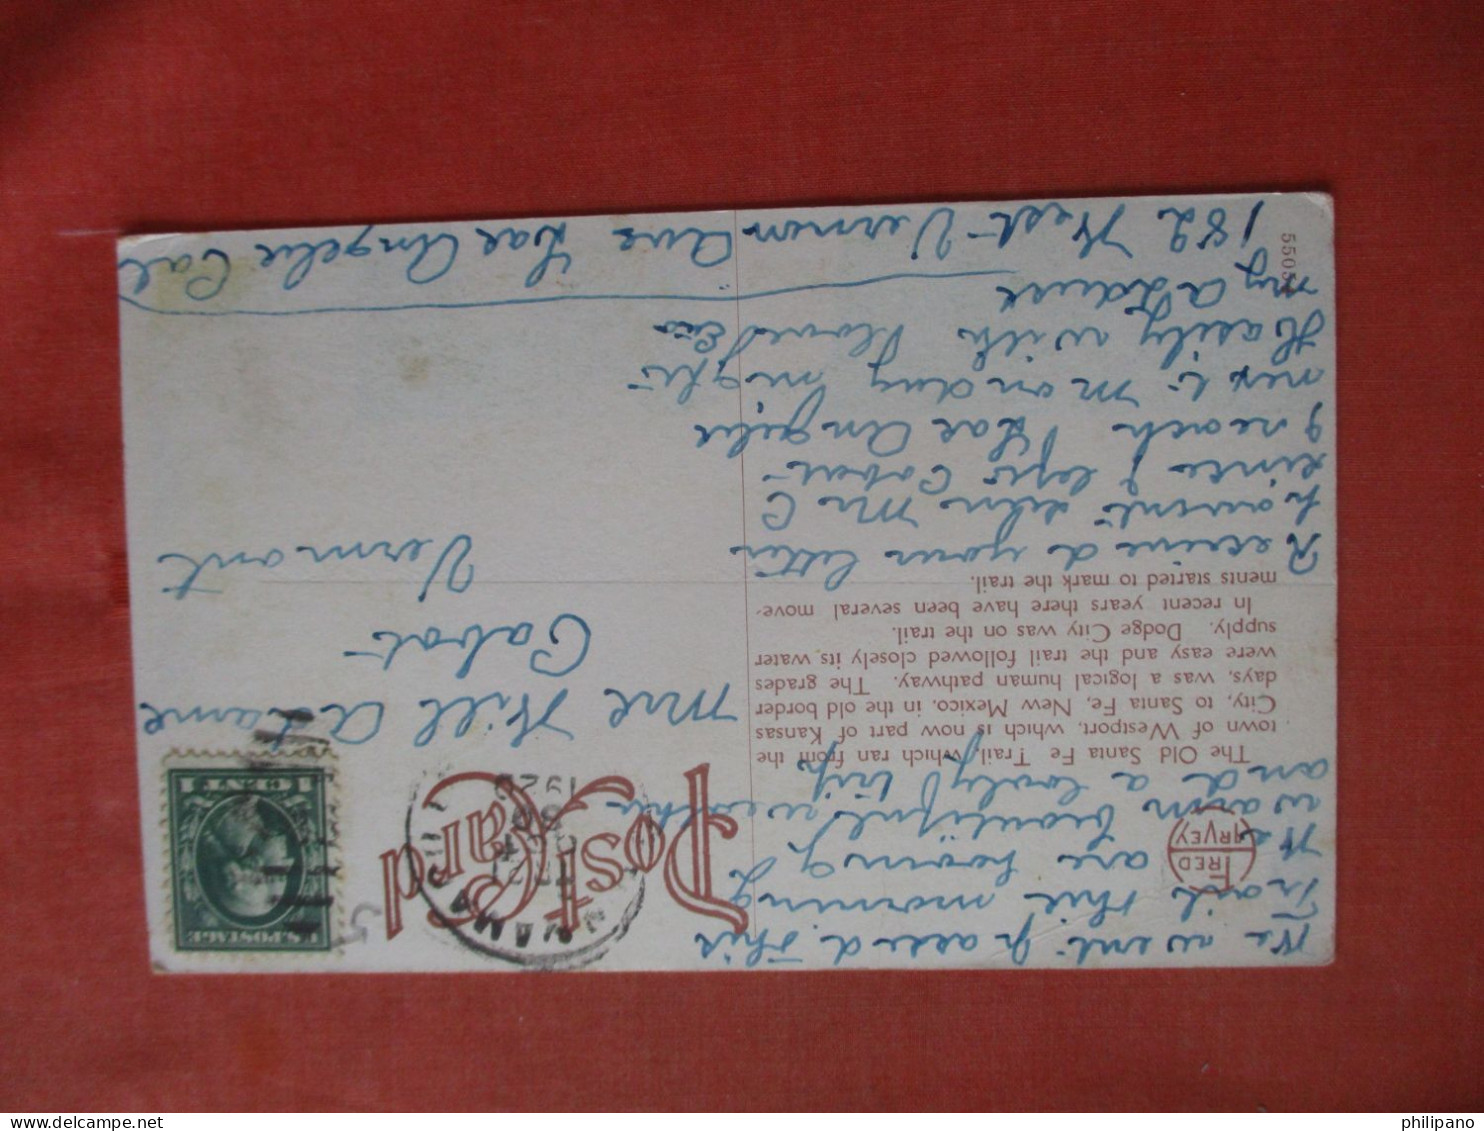 We went passed this
Trail this morning
We are having
warm beautiful weather
and a lovely trip
FRED
HARVEY
The Old Santa Fe Trail, which ran from the
town of Westport, which is now part of Kansas
City, to Santa Fe, New Mexico, in the old border
days, was a logical human pathway. The grades
were easy and the trail followed closely its water
supply. Dodge City was on the trail.
In recent years there have been several move-
ments started to mark the trail.
Received your letter
seln Mr C
since I left Cabot
I reach Los Angeles
next Monday night
Hasily with
my address
182 West Vernon Ave Los Angeles Cal
5505
Post Card
U.S. POSTAGE
1 CENT 1
1920
Mrs Will Adams
Cabot
Vermont
philipano